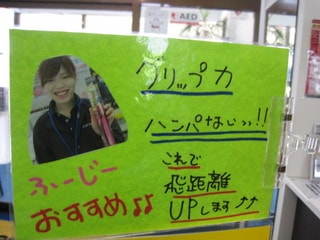 AED
グリップ力
ハンパないっ!!
これで
飛距離
UPします↑↑
ふーじー
おすすめ♪♪